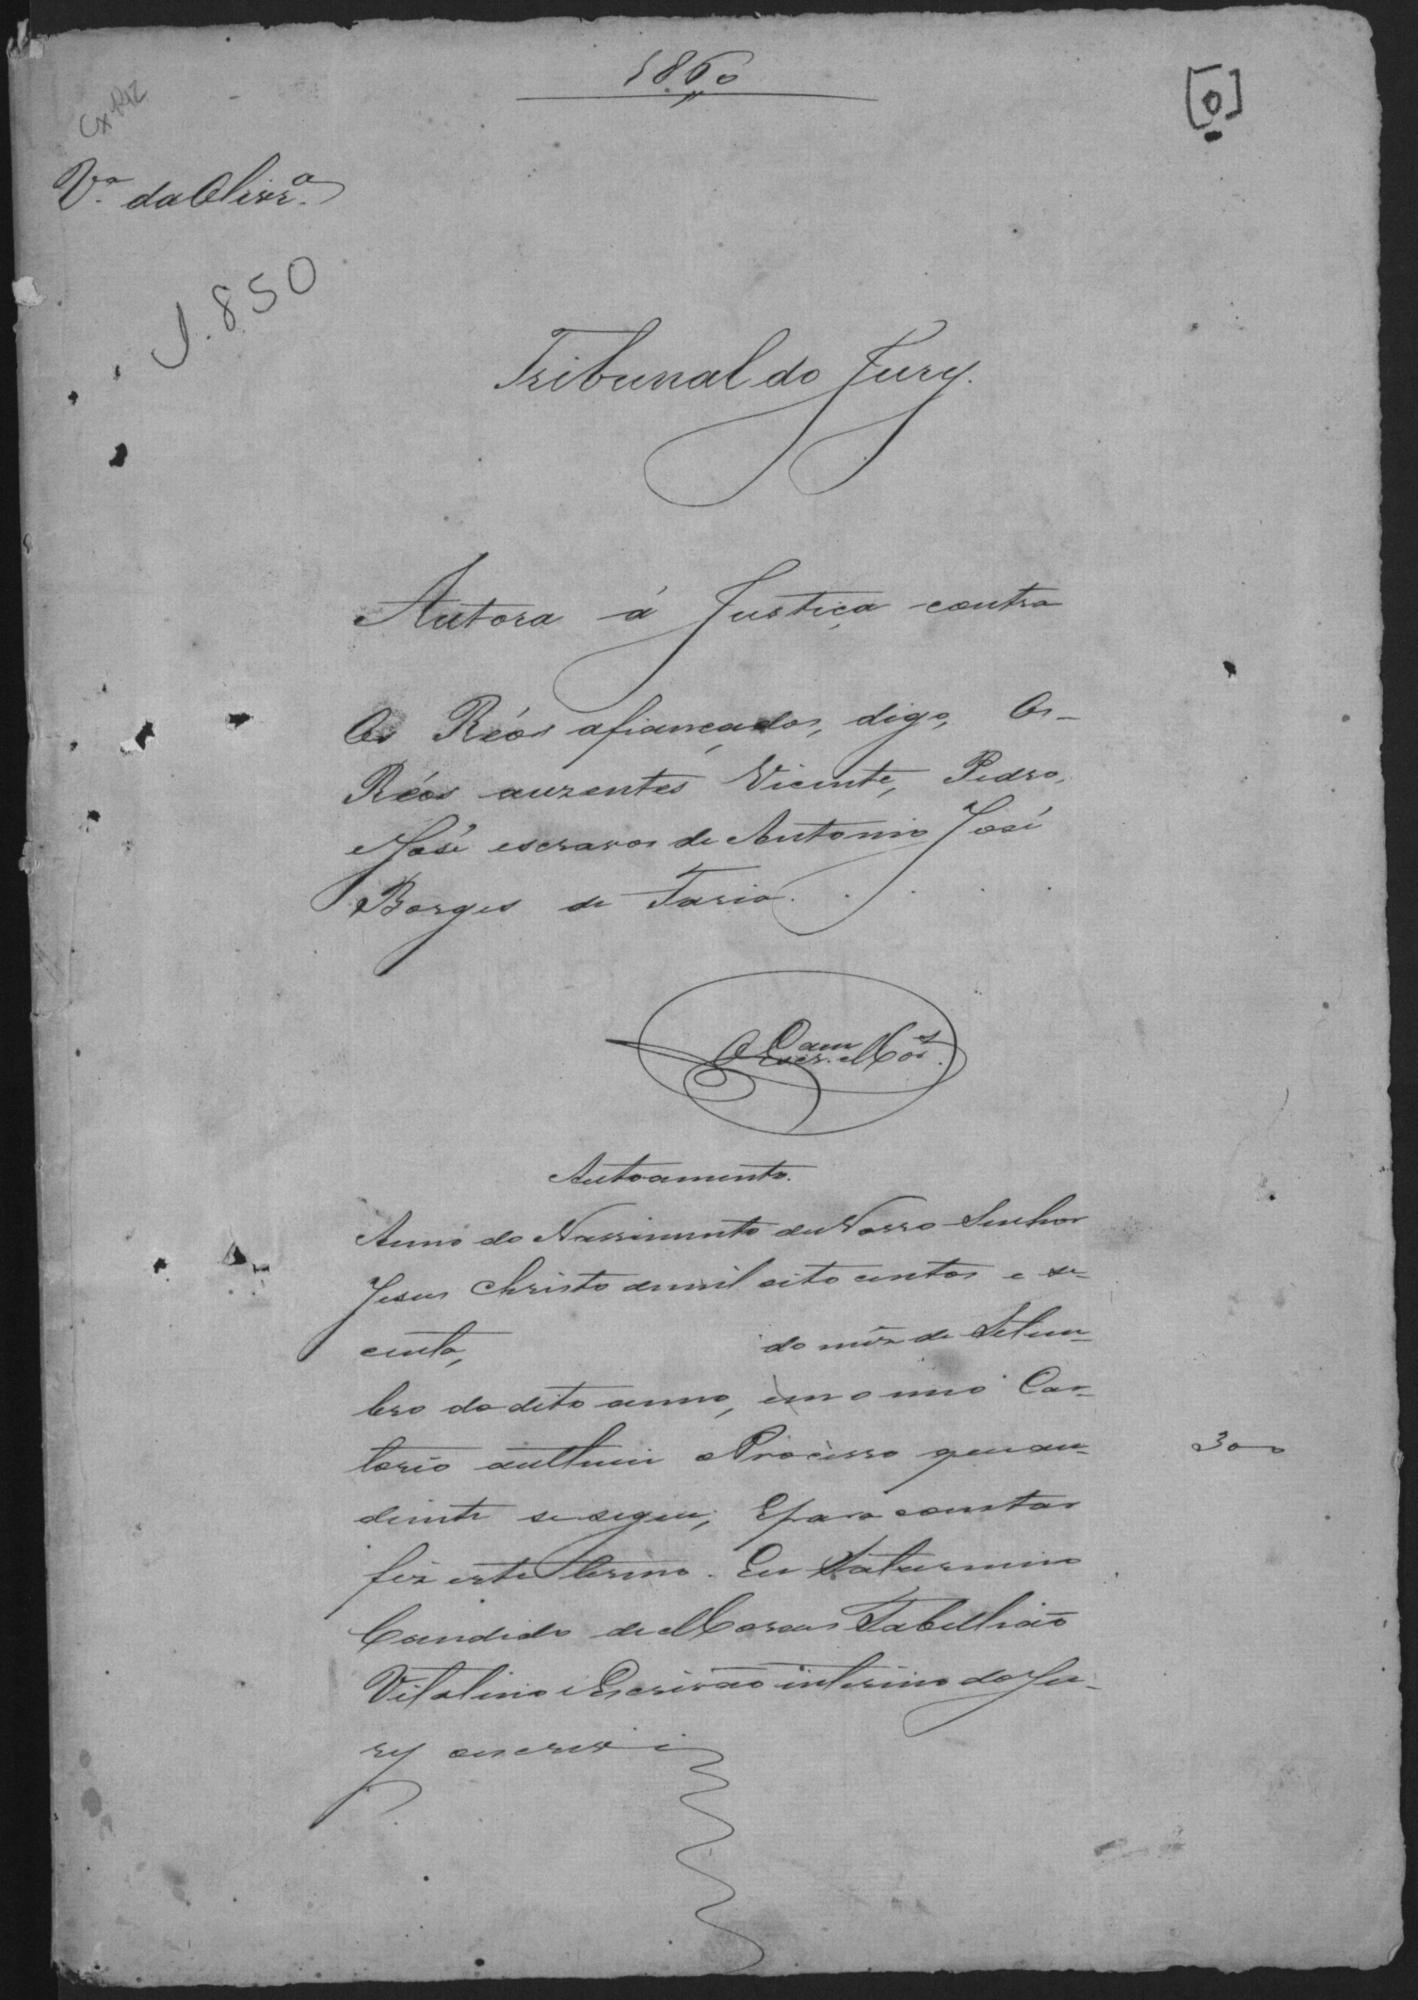 1860
[0]
Cx 142
Vª da Olivrª
J. 850
Tribunal do Jury.
Autora á Justiça contra
Os Réos afiançados, digo, Os
Réos auzentes Vicente, Pedro,
e José escravos de Antonio José
Borges de Faria.
O Escr.
Autoamento.
Anno do Nassimento de Nosso Senhor
Jesus Christo de mil oito centos e se-
centa, do mêz de Setem-
bro do dito anno, em o meo Car-
torio authuei o Processo que au-
diente se segue; E para constar
fiz este termo. Eu Saturnino
Candido de Moraes Tabellião
Vitalino e Escrivão interino do Ju-
ry o escrevi
300